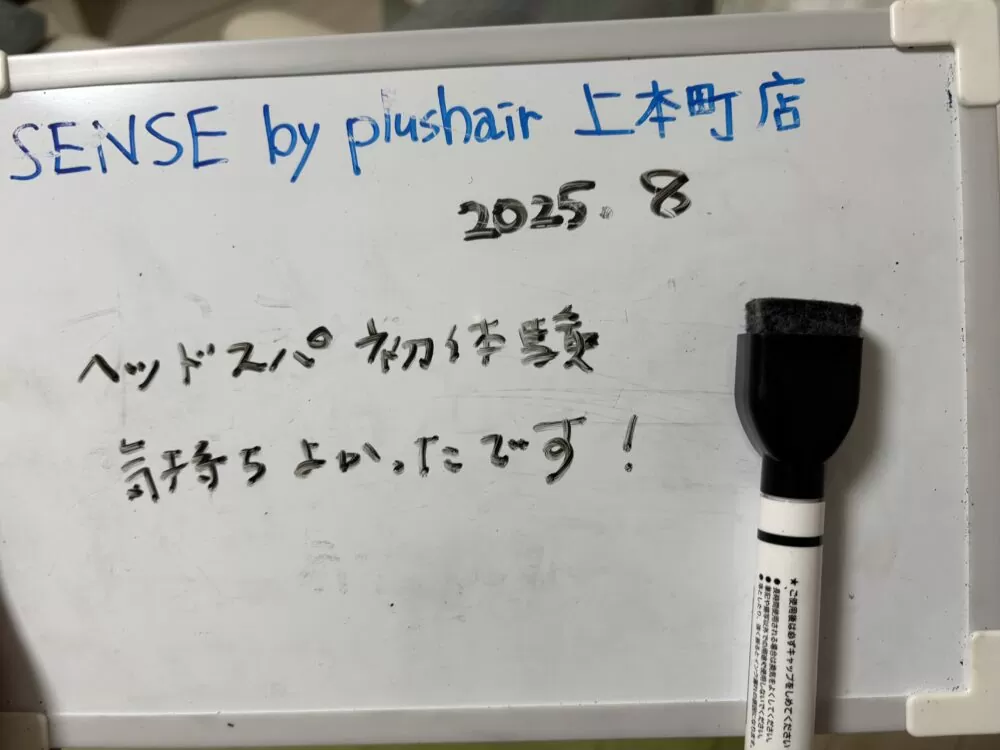 SENSE by plushair 上本町店
2025.8
ヘッドスパ 初体験
気持ちよかったです!
★ご使用後は必ずキャップをしめてください